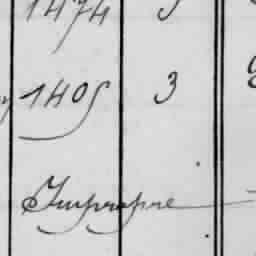 1474
1405 3
Impropre